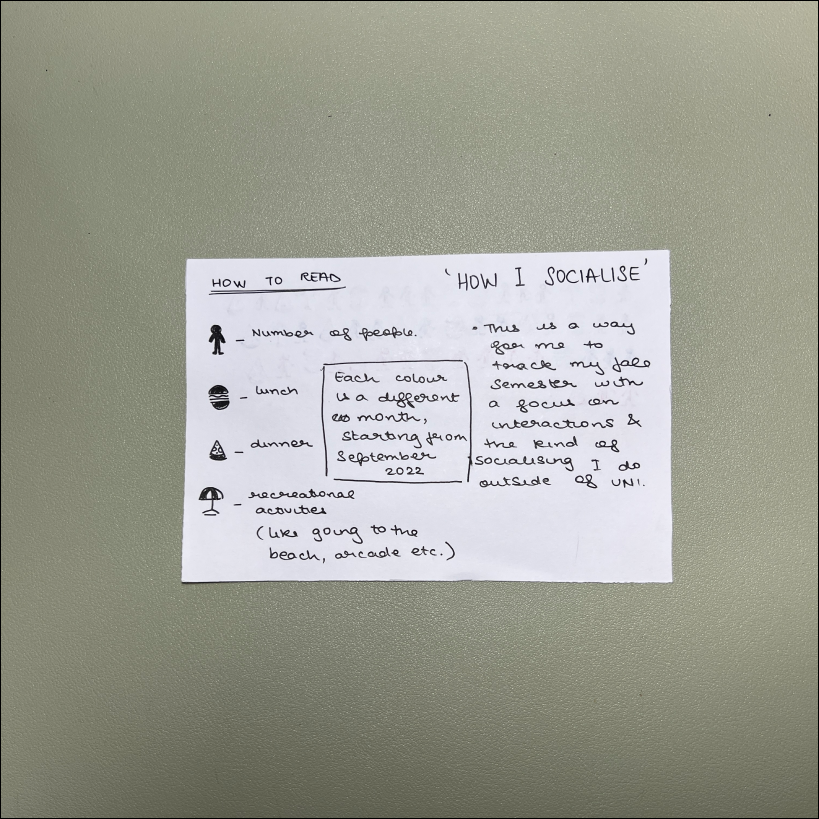 HOW TO READ
'HOW I SOCIALISE'
– Number of people.
– lunch
– dinner
– recreational
activities
(like going to the
beach, arcade etc.)
Each colour
is a different
month,
starting from
September
2022
• This is a way
for me to
track my fall
semester with
a focus on
interactions &
the kind of
socialising I do
outside of UNI.